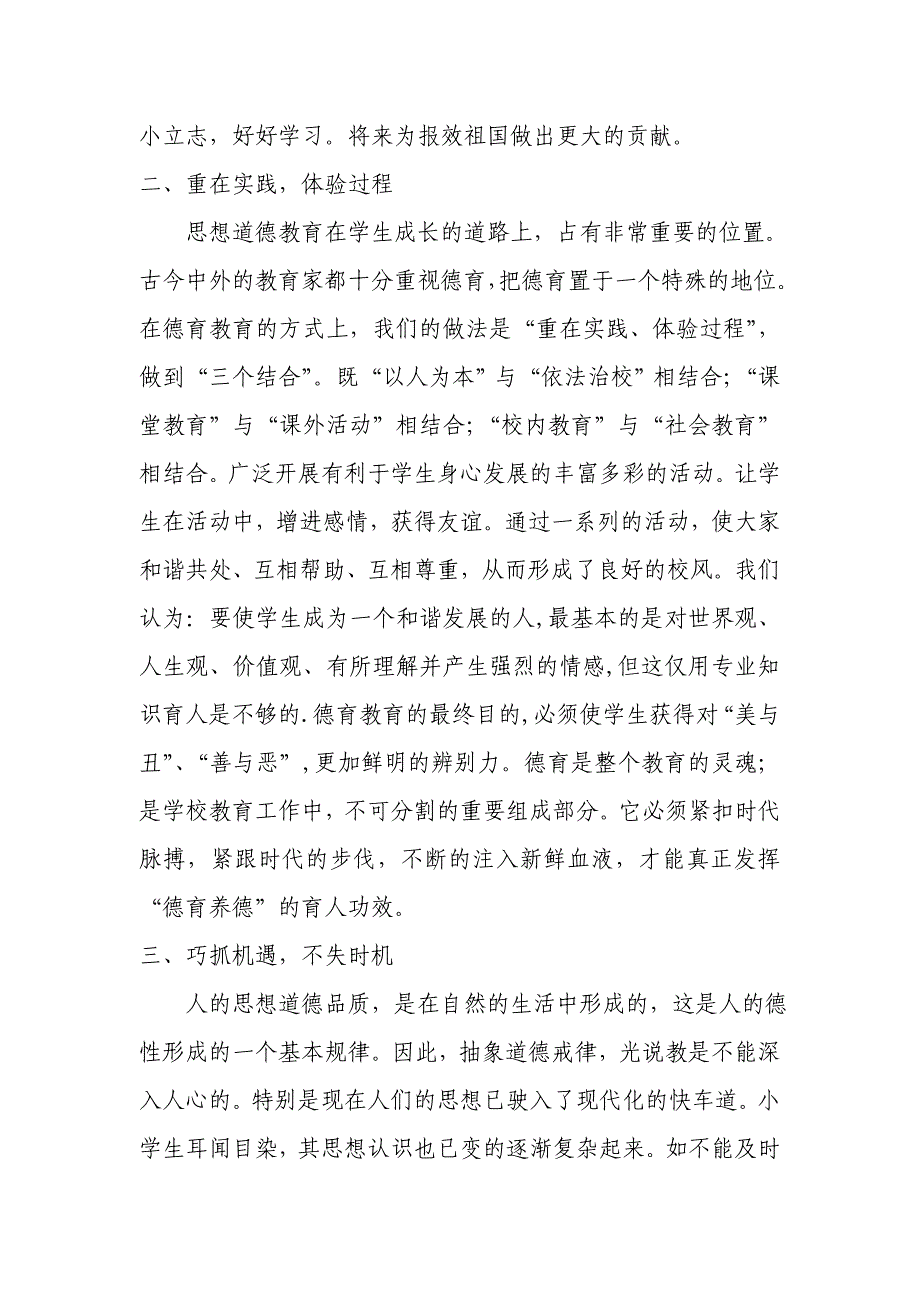 小立志，好好学习。将来为报效祖国做出更大的贡献。
二、重在实践，体验过程
思想道德教育在学生成长的道路上，占有非常重要的位置。
古今中外的教育家都十分重视德育,把德育置于一个特殊的地位。
在德育教育的方式上，我们的做法是“重在实践、体验过程”，
做到“三个结合”。既“以人为本”与“依法治校”相结合；“课
堂教育”与“课外活动”相结合；“校内教育”与“社会教育”
相结合。广泛开展有利于学生身心发展的丰富多彩的活动。让学
生在活动中，增进感情，获得友谊。通过一系列的活动，使大家
和谐共处、互相帮助、互相尊重，从而形成了良好的校风。我们
认为：要使学生成为一个和谐发展的人,最基本的是对世界观、
人生观、价值观、有所理解并产生强烈的情感,但这仅用专业知
识育人是不够的.德育教育的最终目的,必须使学生获得对“美与
丑”、“善与恶”,更加鲜明的辨别力。德育是整个教育的灵魂；
是学校教育工作中，不可分割的重要组成部分。它必须紧扣时代
脉搏，紧跟时代的步伐，不断的注入新鲜血液，才能真正发挥
“德育养德”的育人功效。
三、巧抓机遇，不失时机
人的思想道德品质，是在自然的生活中形成的，这是人的德
性形成的一个基本规律。因此，抽象道德戒律，光说教是不能深
入人心的。特别是现在人们的思想已驶入了现代化的快车道。小
学生耳闻目染，其思想认识也已变的逐渐复杂起来。如不能及时